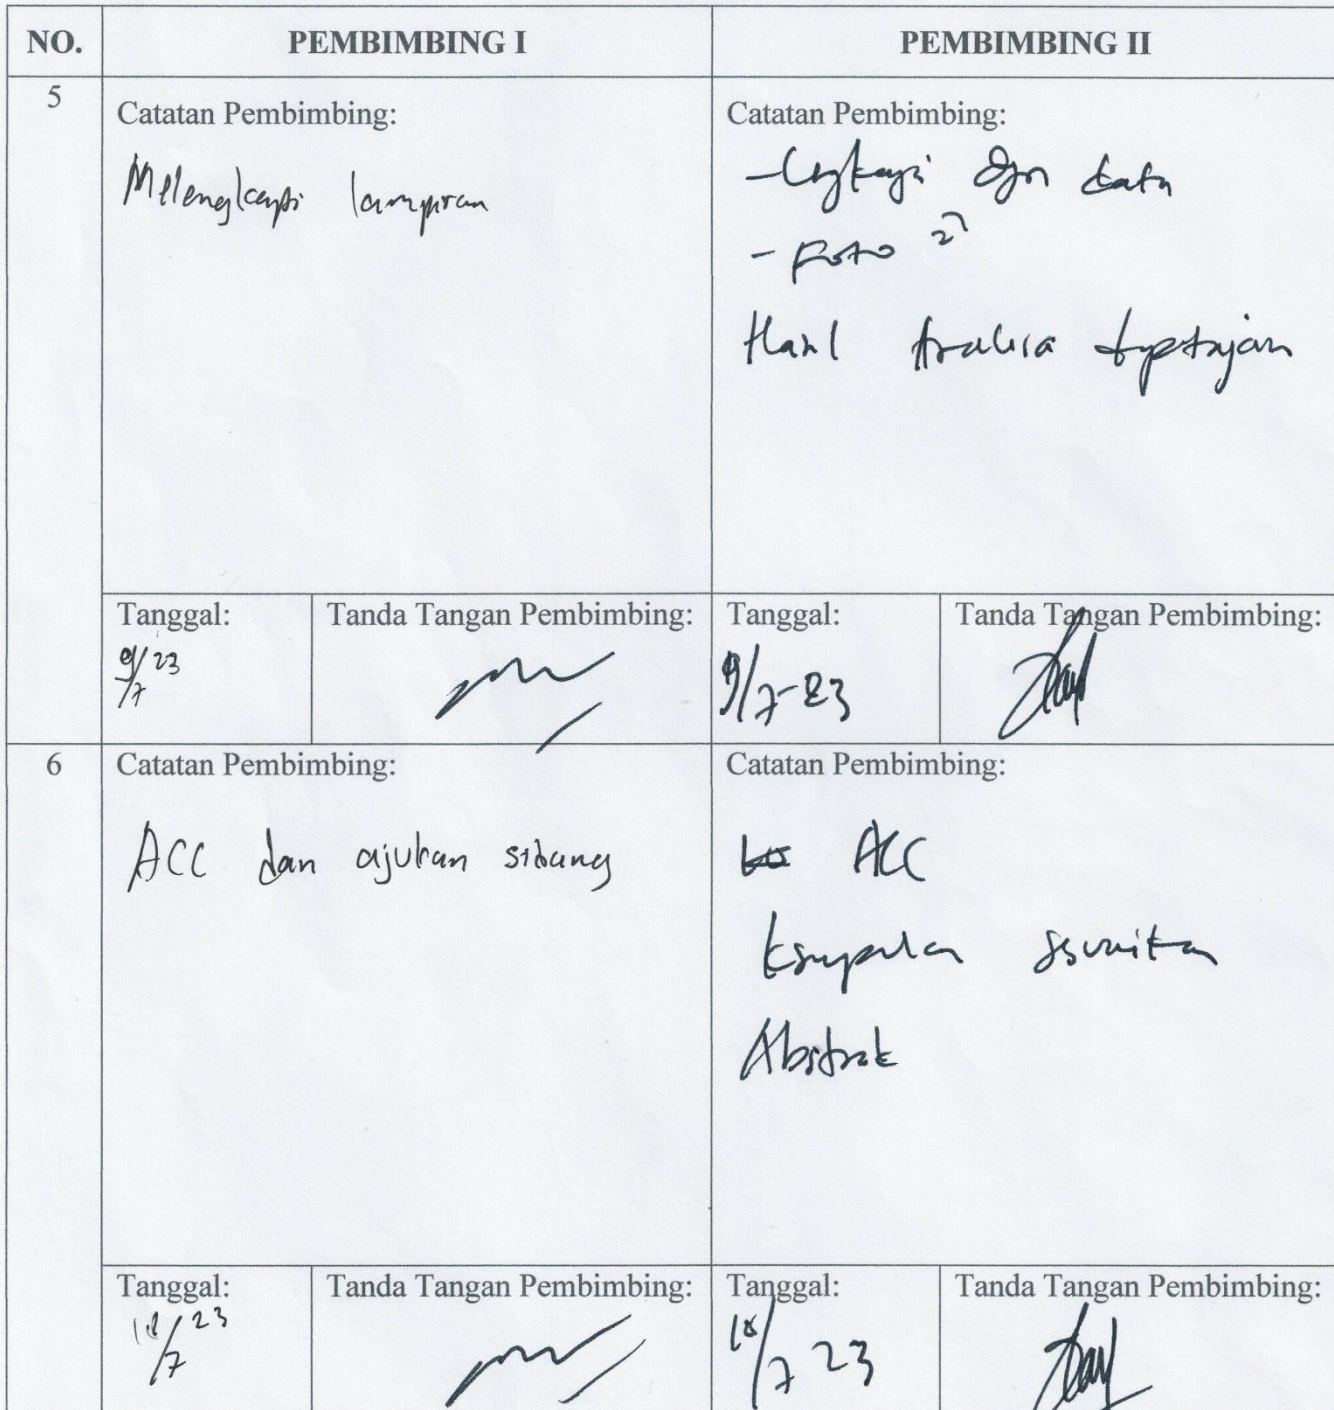 NO. PEMBIMBING I PEMBIMBING II
5
Catatan Pembimbing:
Melengkapi lampiran
Catatan Pembimbing:
- Lengkapi dgn data
- Foto 2
Hasil Analisa
Tanggal:
9/7 23
Tanda Tangan Pembimbing:
Tanggal:
9/7-23
Tanda Tangan Pembimbing:
6
Catatan Pembimbing:
ACC dan ajukan sidang
Catatan Pembimbing:
ACC
Kesimpulan sesuaikan
Abstrak
Tanggal:
/7 23
Tanda Tangan Pembimbing:
Tanggal:
/7 23
Tanda Tangan Pembimbing: